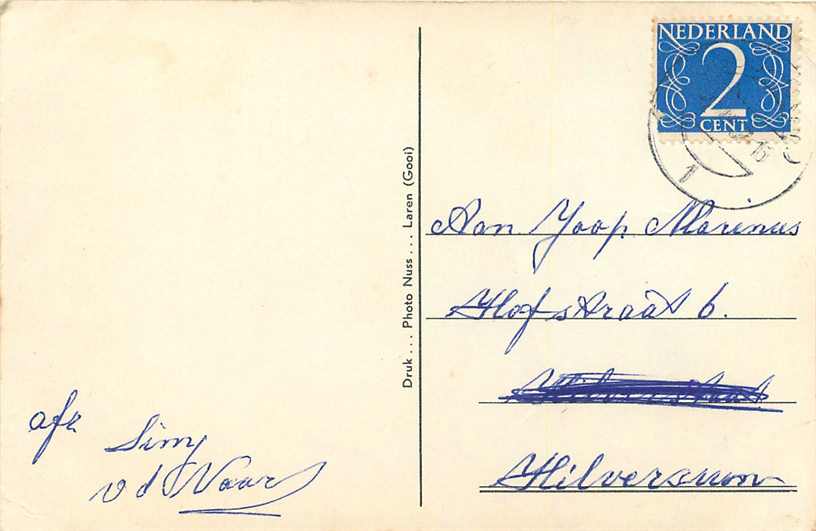 NEDERLAND
2
CENT
Druk ... Photo Nuss ... Laren (Gooi)
Aan Joop Marinus
Hofstraat 6.
Hilversum
afz
Simy
v d Vaart